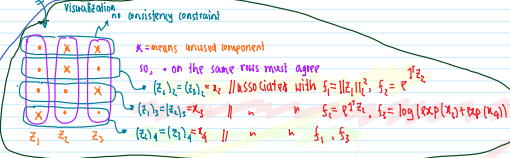 Visualization
no consistency constraint
x = means unused component
so, • on the same rows must agree
(z₁)₂ = (z₃)₂ = x₂ // associated with f₁ = ||z₁||₂², f₂ = e^{1ᵀz₂}
(z₂)₃ = (z₃)₃ = x₃ // " " f₂ = e^{1ᵀz₂}, f₃ = log(exp(x₂)+exp(x₄))
(z₁)₄ = (z₃)₄ = x₄ // " " f₁, f₃
z₁ z₂ z₃